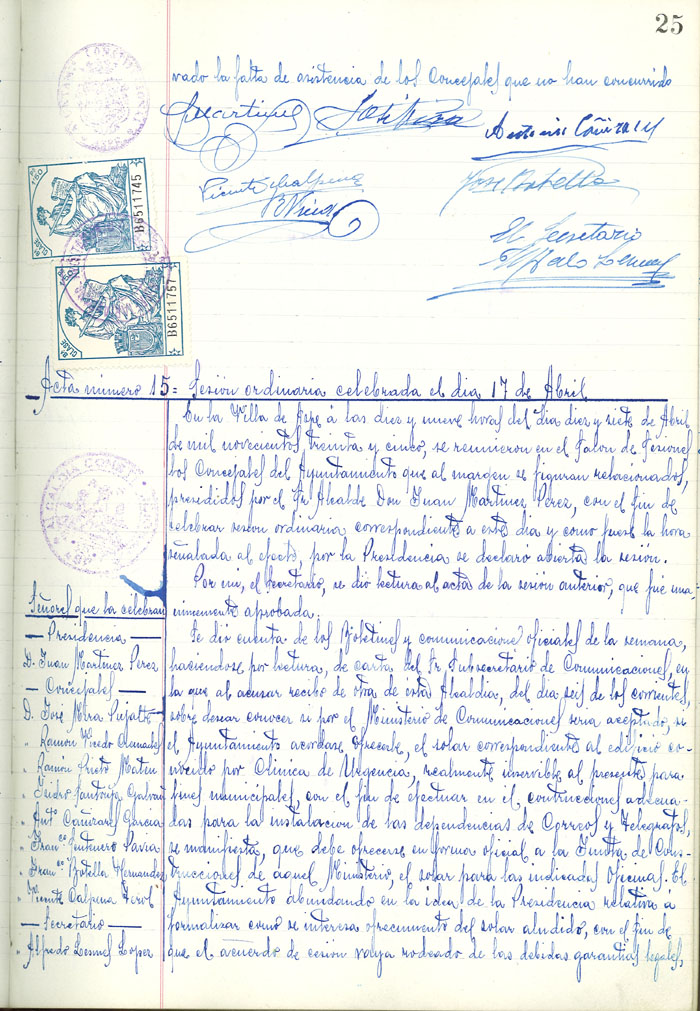 25
vado la falta de asistencia de los Concejales que no han concurrido
JMartinez
José Mira
Antonio Cañizares
Vicente Calpena
José Botella
R Vicedo
El Secretario
Alfredo
B6511745
8ª CLASE
B6511757
Acta número 15= Sesión ordinaria celebrada el dia 17 de Abril
En la Villa de Aspe á las diez y nueve horas del dia diez y siete de Abril
de mil novecientos treinta y cinco, se reunieron en el Salon de Sesiones
los Concejales del Ayuntamiento que al margen se figuran relacionados,
presididos por el Sr. Alcalde Don Juan Martinez Perez, con el fin de
celebrar sesion ordinaria correspondiente a este dia y como fuese la hora
señalada al efecto, por la Presidencia se declaró abierta la sesión.
Por mi, el Secretario, se dió lectura al acta de la sesión anterior, que fué una-
nimemente aprobada.
Se dió cuenta de los Boletines y comunicaciones oficiales de la semana,
haciendose por lectura, de carta del Sr. Subsecretario de Comunicaciones, en
la que al acusar recibo de otra de esta Alcaldia, del dia seis de los corrientes,
sobre desear conocer si por el Ministerio de Comunicaciones seria aceptado, si
el Ayuntamiento acordase ofrecerle, el solar correspondiente al edificio co-
nocido por Clinica de Urgencia, realmente inservible al presente para
fines municipales, con el fin de efectuar en él contrucciones adecua-
das para la instalacion de las dependencias de Correos y Telegrafos,
se manifiesta, que debe ofrecerse en forma oficial a la Junta de Cons-
trucciones de aquel Ministerio, el solar para las indicadas oficinas. El
Ayuntamiento abundando en la idea de la Presidencia relativa á
formalizar como se interesa ofrecimiento del solar aludido, con el fin de
que el acuerdo de cesión vaya rodeado de las debidas garantias legales,
Señores que la celebran
— Presidencia —
D. Juan Martinez Perez
— Concejales —
D. José Mira Pujalte
" Ramón Vicedo
" Ramón Prieto Mateu
" Isidro Santonja Galvañ
" Antº Cañizares Garcia
" Franco Sintenero Pavia
" Franco Botella Hernandez
" Vicente Calpena Cerol
— Secretario —
" Alfredo Lopez